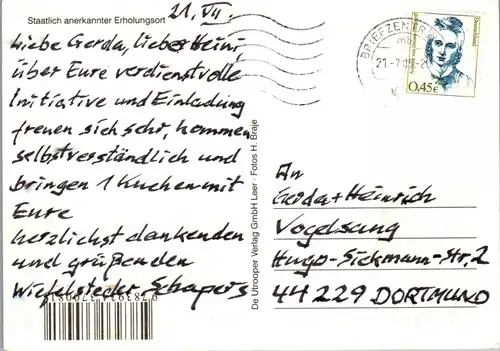 Staatlich anerkannter Erholungsort
21. VII.
Liebe Gerda, lieber Heini,
über Eure verdienstvolle
Initiative und Einladung
freuen sich sehr, kommen
selbstverständlich und
bringen 1 Kuchen mit
Eure
herzlichst dankenden
und grüßenden
Wiefelsteder Schapers
De Utrooper Verlag GmbH Leer · Fotos H. Braje
BRIEFZENTRUM
21.-7.
Deutschland
0,45€
An
Gerda + Heinrich
Vogelsang
Hugo-Sickmann-Str. 2
44229 DORTMUND